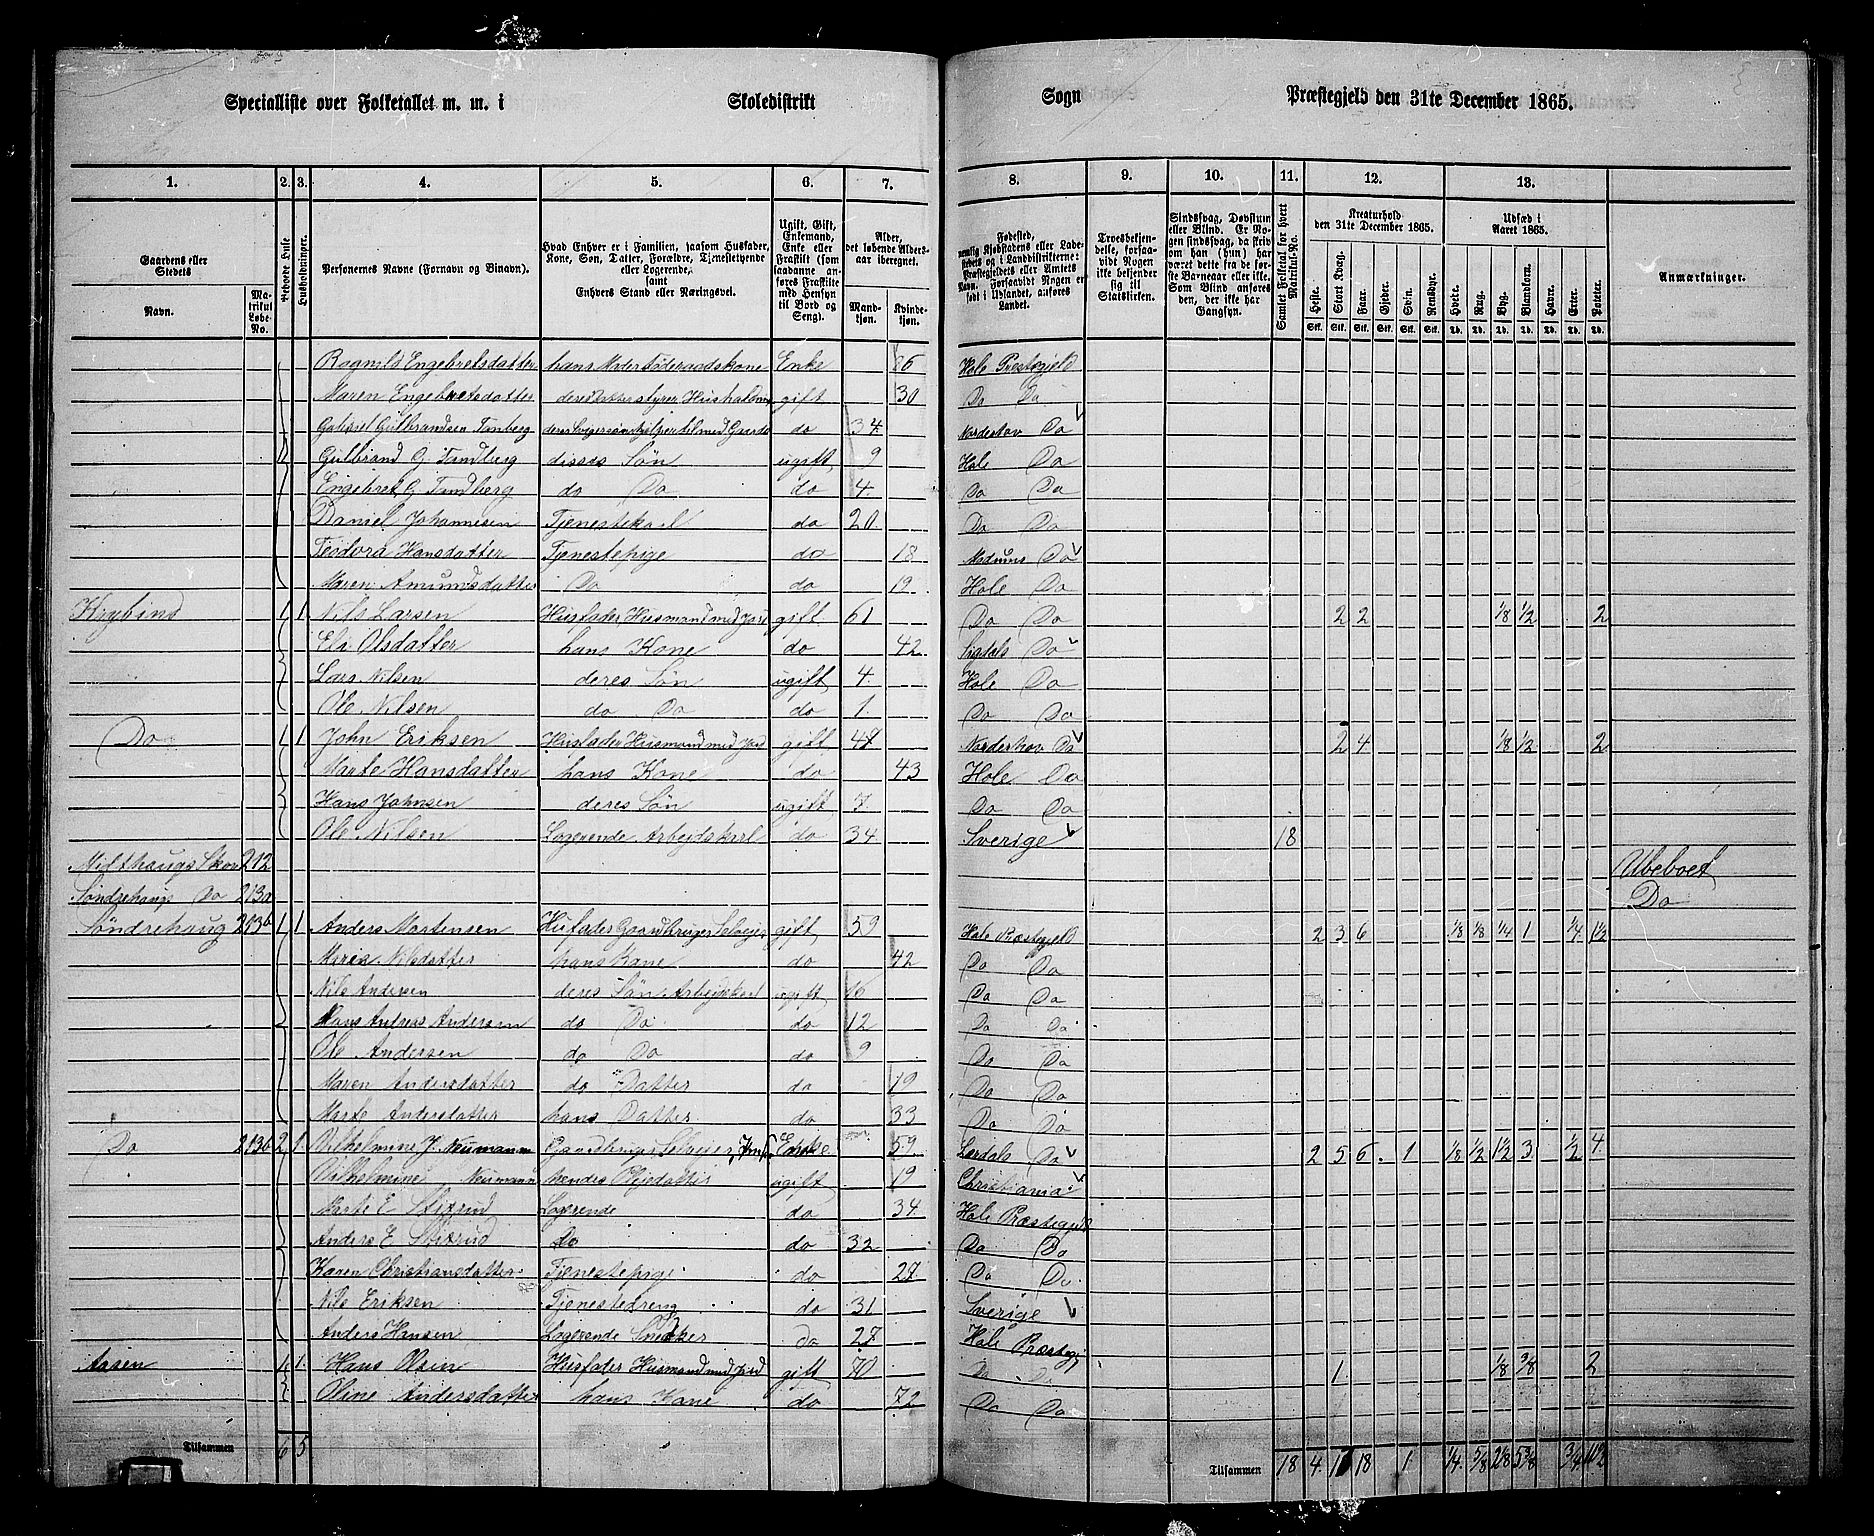 Specialliste over Folketallet m. m. i Skoledistrikt Sogn Præstegjeld den 31te December 1865.
1. 2. 3. 4. 5. 6. 7. 8. 9. 10. 11. 12. 13.
Gaardens eller Stedets Navn. Matrikul Løbe-No.
Beboede Huse
Husholdninger.
Personernes Navne (Fornavn og Binavn).
Hvad Enhver er i Familien, saasom Husfader, Kone, Søn, Datter, Forældre, Tjenestetyende eller Logerende, samt Enhvers Stand eller Næringsvei.
Ugift, Gift, Enkemand, Enke eller Fraskilt (som saadanne anføres Fraskilte med Hensyn til Bord og Seng).
Alder, det løbende Aldersaar iberegnet. Mandkjøn. Kvindekjøn.
Fødested,
Troesbekjendelse, forsaavidt Nogen ikke bekjender sig til Statskirken.
Sindssvag, Døvstum eller Blind.
Samlet Folketal for hvert Matrikul-No.
Kreaturhold den 31te December 1865. Heste. Stort Kvæg. Faar. Gjeder. Svin. Rensdyr.
Udsæd i Aaret 1865. Hvete. Rug. Byg. Blandkorn. Havre. Erter. Poteter.
Anmærkninger.
Ragnild Engebretsdatter hans Moder Føderaadskone Enke 86 Hole Præstegjeld
Maren Engebretsdatter deres Datter styrer Husholdn gift 30 Do Do
Gabriel Gulbrandsen Tanberg do 34 Norderhov Do
Gulbrand G Tandberg disses Søn ugift 9 Hole Do
Engebret G Tandberg do Do do 4 Do Do
Daniel Johannesen Tjenestekarl do 20 Do Do
Teodora Hansdatter Tjenestepige do 18 Modums Do
Maren Amundsdatter Do do 19 Hole Do
1 1 Nils Larsen Husfader Husmand med Jord gift 61 Do Do 2 2 1/8 1/2 2
Eli Olsdatter hans Kone do 42 Sigdals Do
Lars Nilsen deres Søn ugift 4 Hole Do
Ole Nilsen do Do do 1 Do Do
Do 1 1 John Eriksen Husfader Husmand med Jord gift 47 Norderhov Do 2 4 1/8 1/2 2
Marte Hansdatter hans Kone do 43 Hole Do
Hans Johnsen deres Søn ugift 7 Do Do
Ole Nilsen Logerende Arbejdskarl do 34 Sverige 18
Milthaugs Skov 212 Ubeboet
Søndrehaugs Do 213a Do
Søndrehaug 213b 1 1 Anders Mortensen Husfader Gaardbruger Selveier gift 59 Hole Præstegjeld 2 3 6 1/8 1/8 1/4 1 1/4 1 1/2
Maren Nilsdatter hans Kone do 42 Do Do
Nils Andersen deres Søn Arbejdskarl ugift 16 Do Do
Hans Andreas Andersen do Do do 12 Do Do
Ole Andersen do Do do 9 Do Do
Maren Andersdatter do Datter do 19 Do Do
Marte Andersdatter hans Datter do 33 Do Do
Do 213b 2 1 Vilhelmine J. Neumann Gaardbruger Selveier Enke 59 Lærdals Do 2 5 6 1 1/8 1/2 1 1/2 3 1/2 4
Vilhelmine Neumann hendes Plejedatter ugift 19 Christiania
Marte E Stixrud Logerende do 34 Hole Præstegjeld
Anders E Stixrud do do 32 Do Do
Karen Christiansdatter Tjenestepige do 27 Do Do
Nils Eriksen Tjenestedreng do 31 Sverige
Anders Hansen Logerende Snedker Do 27 Hole Præstegj
Aasen 1 1 Hans Olsen Husfader Husmand med Jord gift 70 Do Do 1 1/8 3/8 2
Oline Andersdatter hans Kone do 72 Do Do
Tilsammen 6 5 Tilsammen 18 4 17 18 1 1/4 5/8 2 1/8 5 3/8 3/4 11 1/2